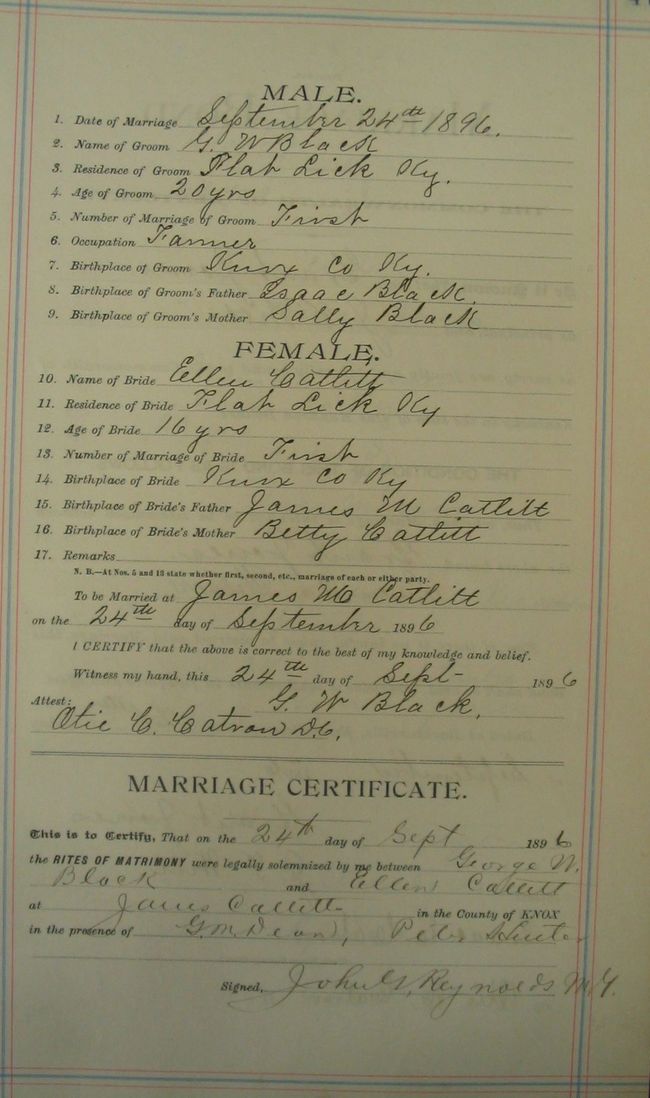 MALE.
1. Date of Marriage September 24th 1896.
2. Name of Groom G. W Black
3. Residence of Groom Flat Lick Ky.
4. Age of Groom 20 yrs
5. Number of Marriage of Groom First
6. Occupation Farmer
7. Birthplace of Groom Knox Co Ky.
8. Birthplace of Groom's Father Isaac Black.
9. Birthplace of Groom's Mother Sally Black
FEMALE.
10. Name of Bride Ellen Catlitt
11. Residence of Bride Flat Lick Ky
12. Age of Bride 16 yrs
13. Number of Marriage of Bride First
14. Birthplace of Bride Knox Co Ky
15. Birthplace of Bride's Father James M Catlitt
16. Birthplace of Bride's Mother Betty Catlitt
17. Remarks
N. B.—At Nos. 5 and 13 state whether first, second, etc., marriage of each or either party.
To be Married at James M Catlitt
on the 24th day of September 1896
I CERTIFY that the above is correct to the best of my knowledge and belief.
Witness my hand, this 24th day of Sept- 1896
Attest: G. W Black.
Otie C. Catron D.C.
MARRIAGE CERTIFICATE.
This is to Certify, That on the 24th day of Sept 1896
the RITES OF MATRIMONY were legally solemnized by me between George W.
Black and Ellen Catlitt
at James Catlitt- in the County of KNOX
in the presence of G. M. Dean, Peter
Signed, John G, Reynolds M.G.